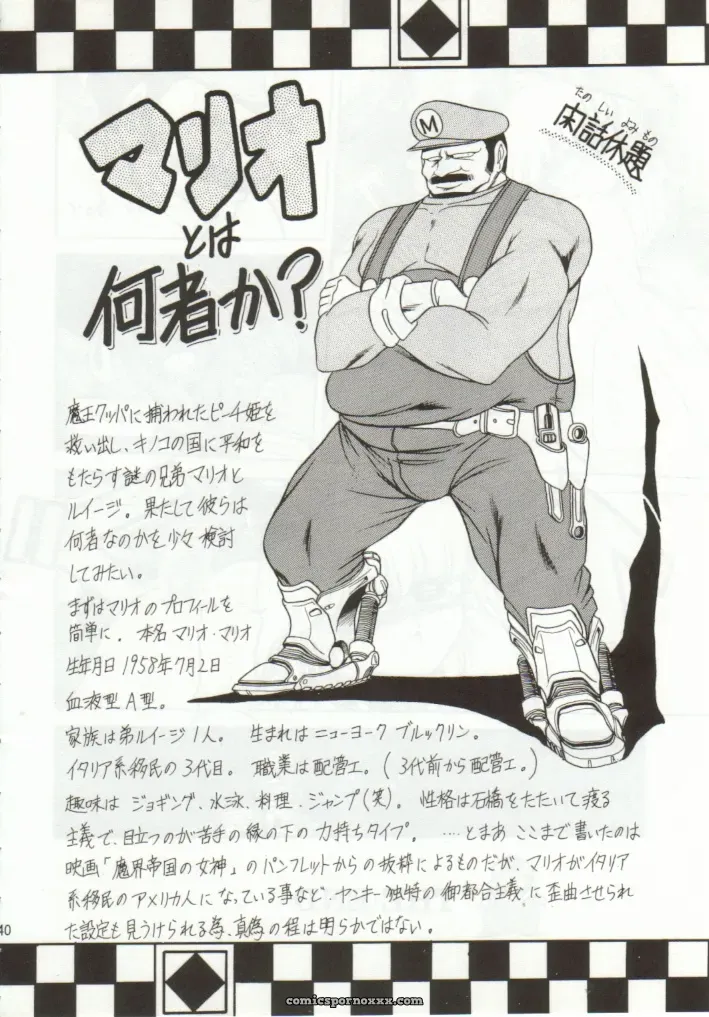 マリオ
とは
何者か?
たの しい よみ もの
閑話休題
M
魔王クッパに捕われたピーチ姫を
救い出し、キノコの国に平和を
もたらす謎の兄弟マリオと
ルイージ。果たして彼らは
何者なのかを少々検討
してみたい。
まずはマリオのプロフィールを
簡単に。本名マリオ・マリオ
生年月日1958年7月2日
血液型A型。
家族は弟ルイージ1人。 生まれはニューヨーク ブルックリン。
イタリア系移民の3代目。 職業は配管工。(3代前から配管工。)
趣味はジョギング、水泳、料理・ジャンプ(笑)。 性格は石橋をたたいて寝る
主義で、目立つのが苦手の縁の下の力持ちタイプ。 ‥‥とまあここまで書いたのは
映画「魔界帝国の女神」のパンフレットからの抜粋によるものだが、マリオがイタリア
系移民のアメリカ人になっている事など、ヤンキー独特の御都合主義に歪曲させられ
た設定も見うけられる為、真偽の程は明らかではない。
40
comicspornoxxx.com